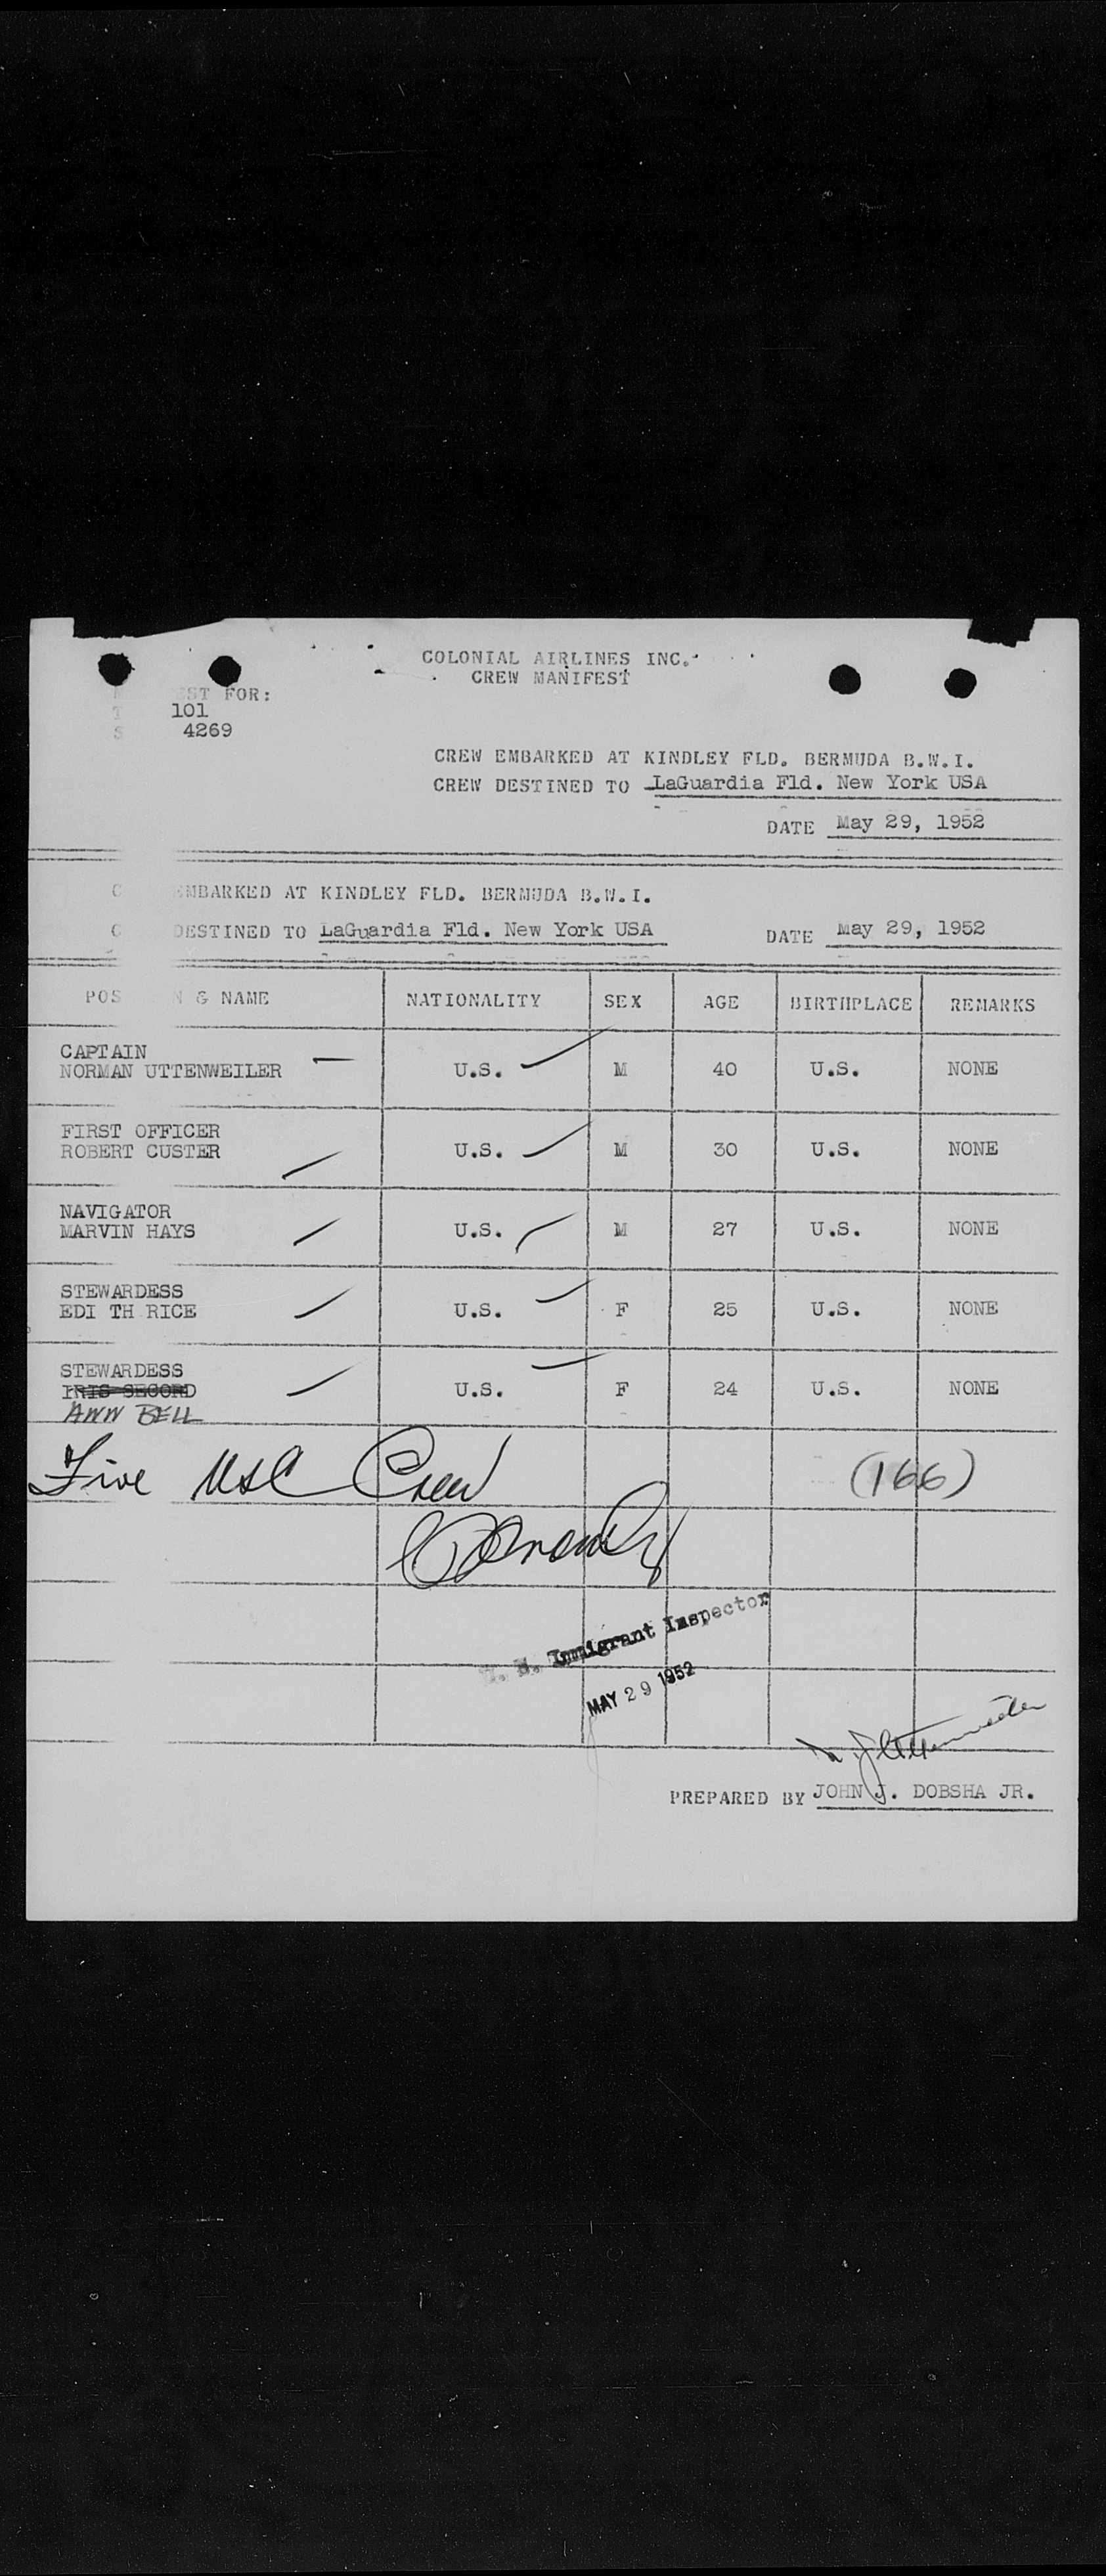 COLONIAL AIRLINES INC.
CREW MANIFEST
ST FOR:
101
4269
CREW EMBARKED AT KINDLEY FLD. BERMUDA B.W.I.
CREW DESTINED TO LaGuardia Fld. New York USA
DATE May 29, 1952
C EMBARKED AT KINDLEY FLD. BERMUDA B.W.I.
C DESTINED TO LaGuardia Fld. New York USA DATE May 29, 1952
POS N & NAME NATIONALITY SEX AGE BIRTHPLACE REMARKS
CAPTAIN
NORMAN UTTENWEILER U.S. M 40 U.S. NONE
FIRST OFFICER
ROBERT CUSTER U.S. M 30 U.S. NONE
NAVIGATOR
MARVIN HAYS U.S. M 27 U.S. NONE
STEWARDESS
EDI TH RICE U.S. F 25 U.S. NONE
STEWARDESS
IRIS SECORD U.S. F 24 U.S. NONE
ANN BELL
Five USC Crew (166)
U. S. Immigrant Inspector
MAY 29 1952
PREPARED BY JOHN J. DOBSHA JR.